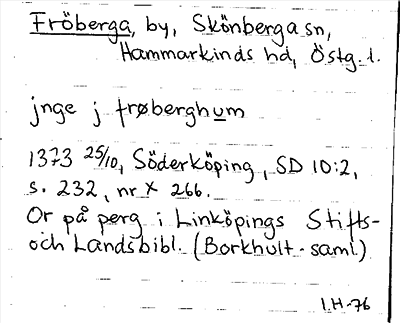 Fröberga, by, Skönberga sn,
Hammarkinds hd, Östg. l.
jnge j frøberghum
1373 25/10, Söderköping, SD 10:2,
s. 232, nr x 266.
Or på perg i Linköpings Stifts-
och Landsbibl. (Borkhult-saml.)
I.H-76